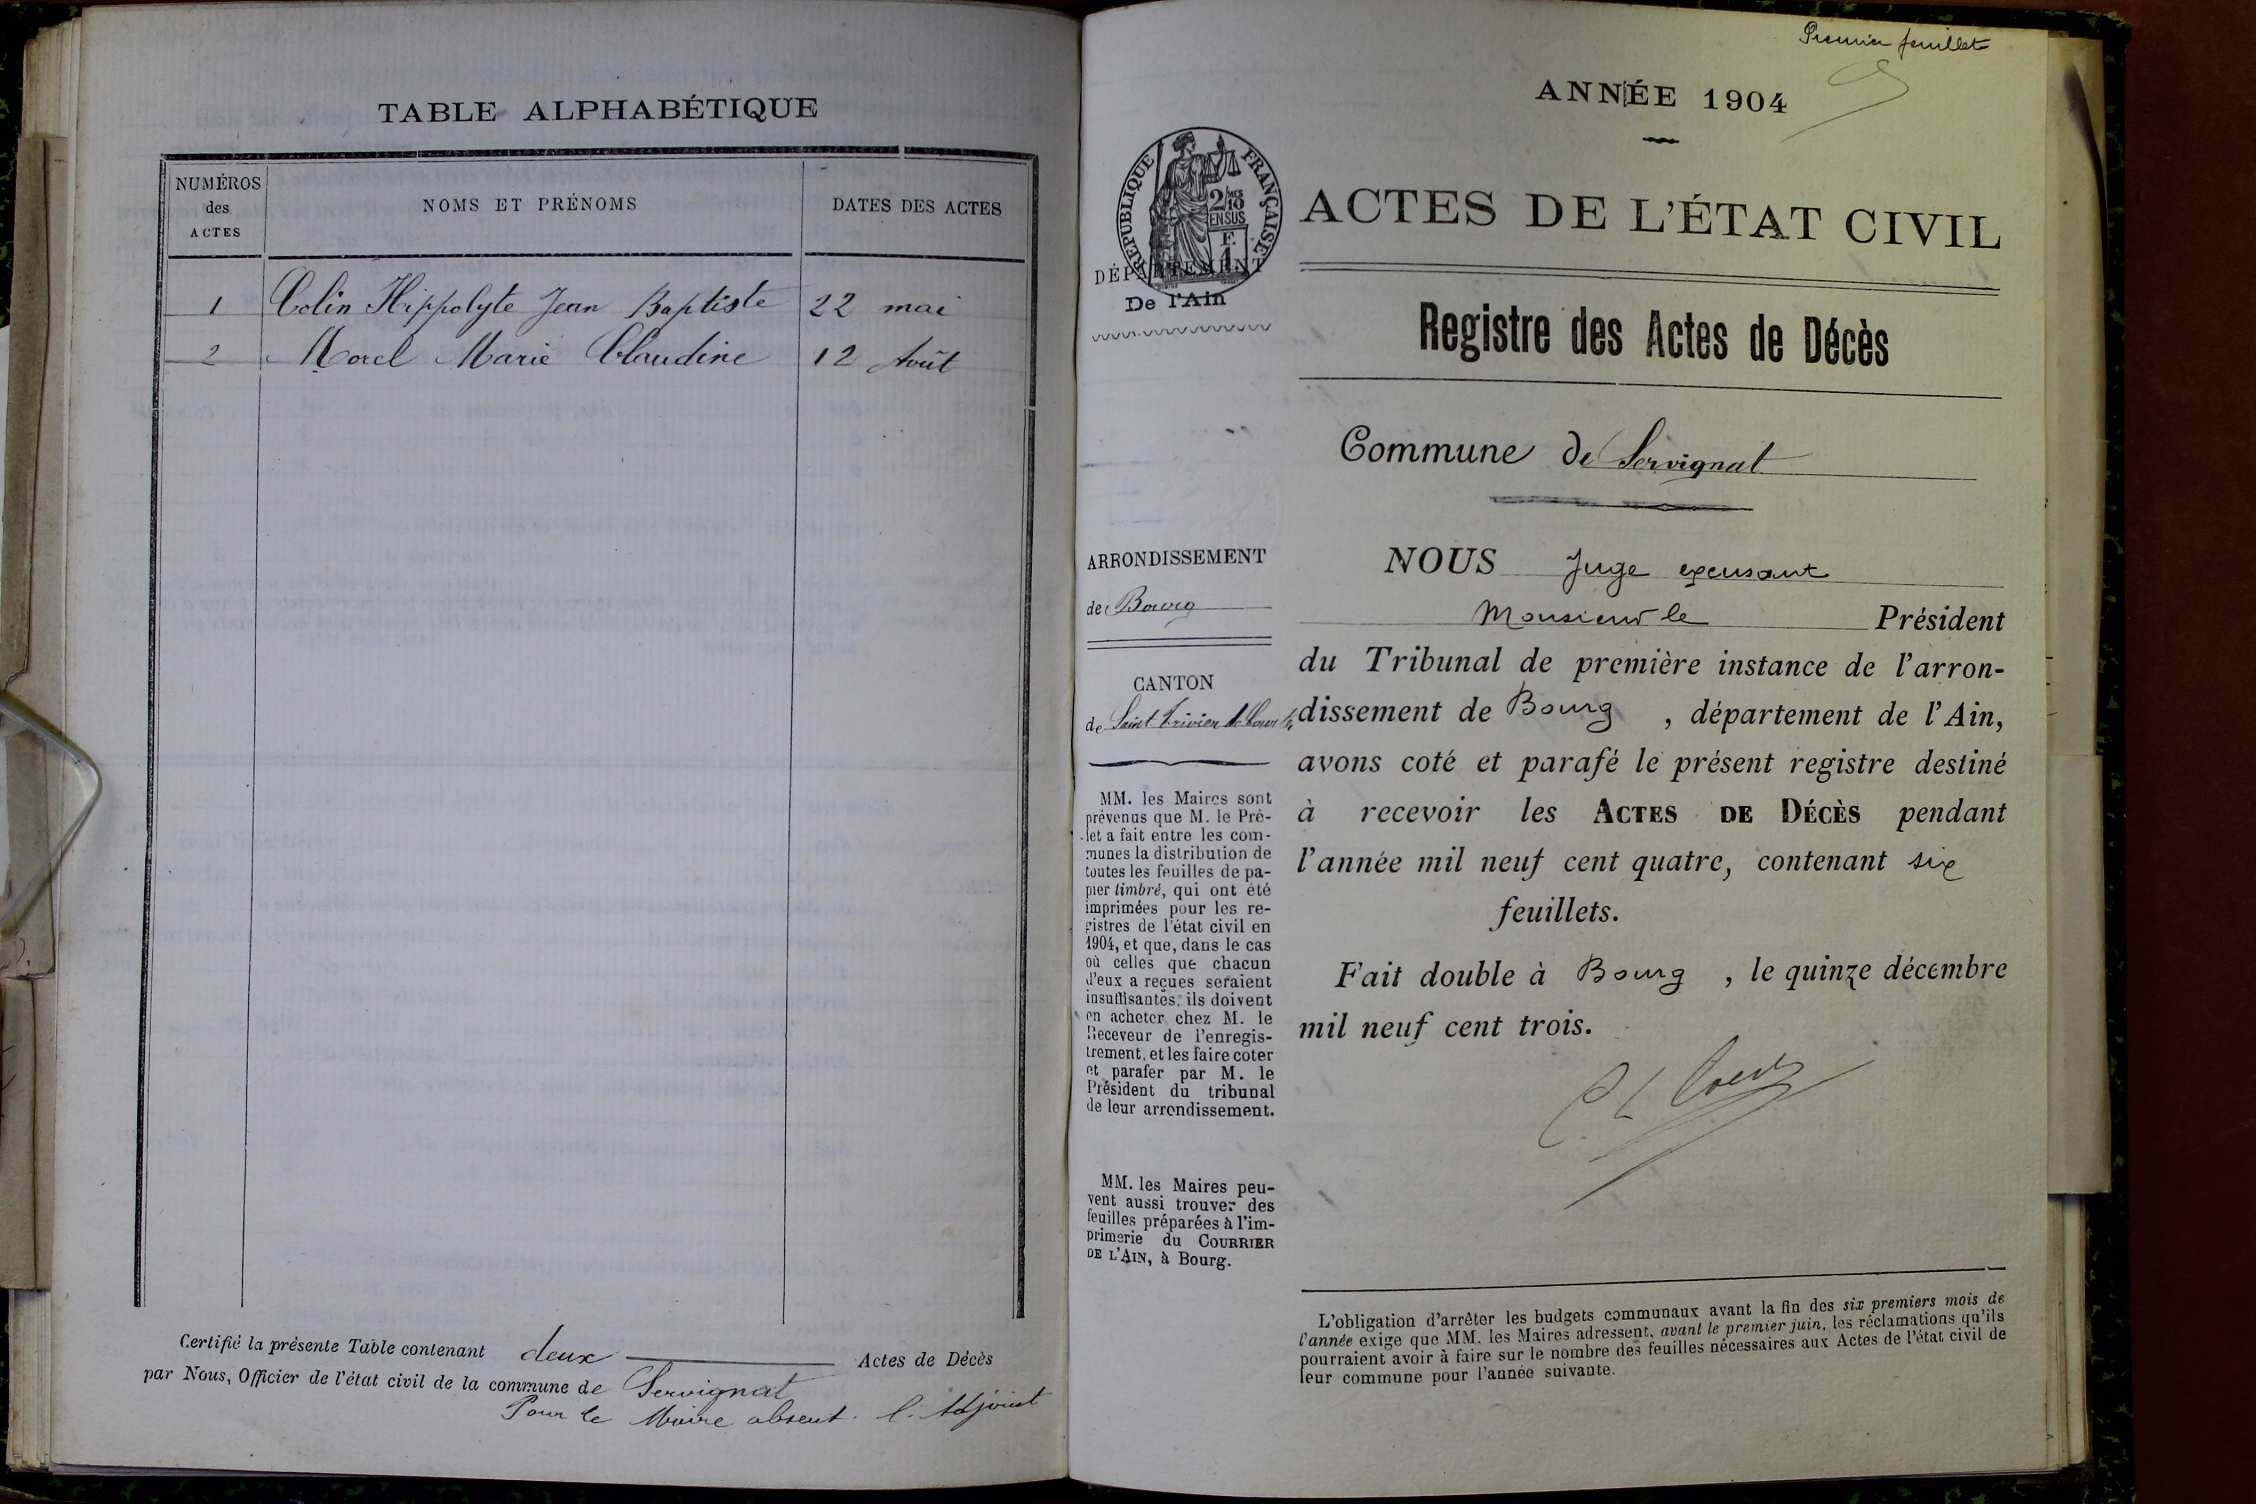 TABLE ALPHABÉTIQUE
NUMÉROS
des
ACTES
NOMS ET PRÉNOMS
DATES DES ACTES
1 Colin Hippolyte Jean Baptiste 22 mai
2 Morel Marie Claudine 12 Août
Certifié la présente Table contenant deux Actes de Décès
par Nous, Officier de l'état civil de la commune de Servignat
Pour le Maire absent. l. Adjoint
Premier feuillet
ANNÉE 1904
RÉPUBLIQUE FRANÇAISE
2/10
EN SUS
F.
1
DÉPARTEMENT
De l'Ain
ACTES DE L'ÉTAT CIVIL
Registre des Actes de Décès
Commune de Servignat
ARRONDISSEMENT
de Bourg
CANTON
de Saint Trivier de Courtes
MM. les Maires sont
prévenus que M. le Pré-
fet a fait entre les com-
munes la distribution de
toutes les feuilles de pa-
pier timbré, qui ont été
imprimées pour les re-
gistres de l'état civil en
1904, et que, dans le cas
où celles que chacun
d'eux a reçues seraient
insuffisantes, ils doivent
en acheter chez M. le
Receveur de l'enregis-
trement, et les faire coter
et parafer par M. le
Président du tribunal
de leur arrondissement.
MM. les Maires peu-
vent aussi trouver des
feuilles préparées à l'im-
primerie du COURRIER
DE L'AIN, à Bourg.
NOUS Juge excusant
Monsieur le Président
du Tribunal de première instance de l'arron-
dissement de Bourg , département de l'Ain,
avons coté et parafé le présent registre destiné
à recevoir les ACTES DE DÉCÈS pendant
l'année mil neuf cent quatre, contenant six
feuillets.
Fait double à Bourg , le quinze décembre
mil neuf cent trois.
L'obligation d'arrêter les budgets communaux avant la fin des six premiers mois de
l'année exige que MM. les Maires adressent, avant le premier juin, les réclamations qu'ils
pourraient avoir à faire sur le nombre des feuilles nécessaires aux Actes de l'état civil de
leur commune pour l'année suivante.